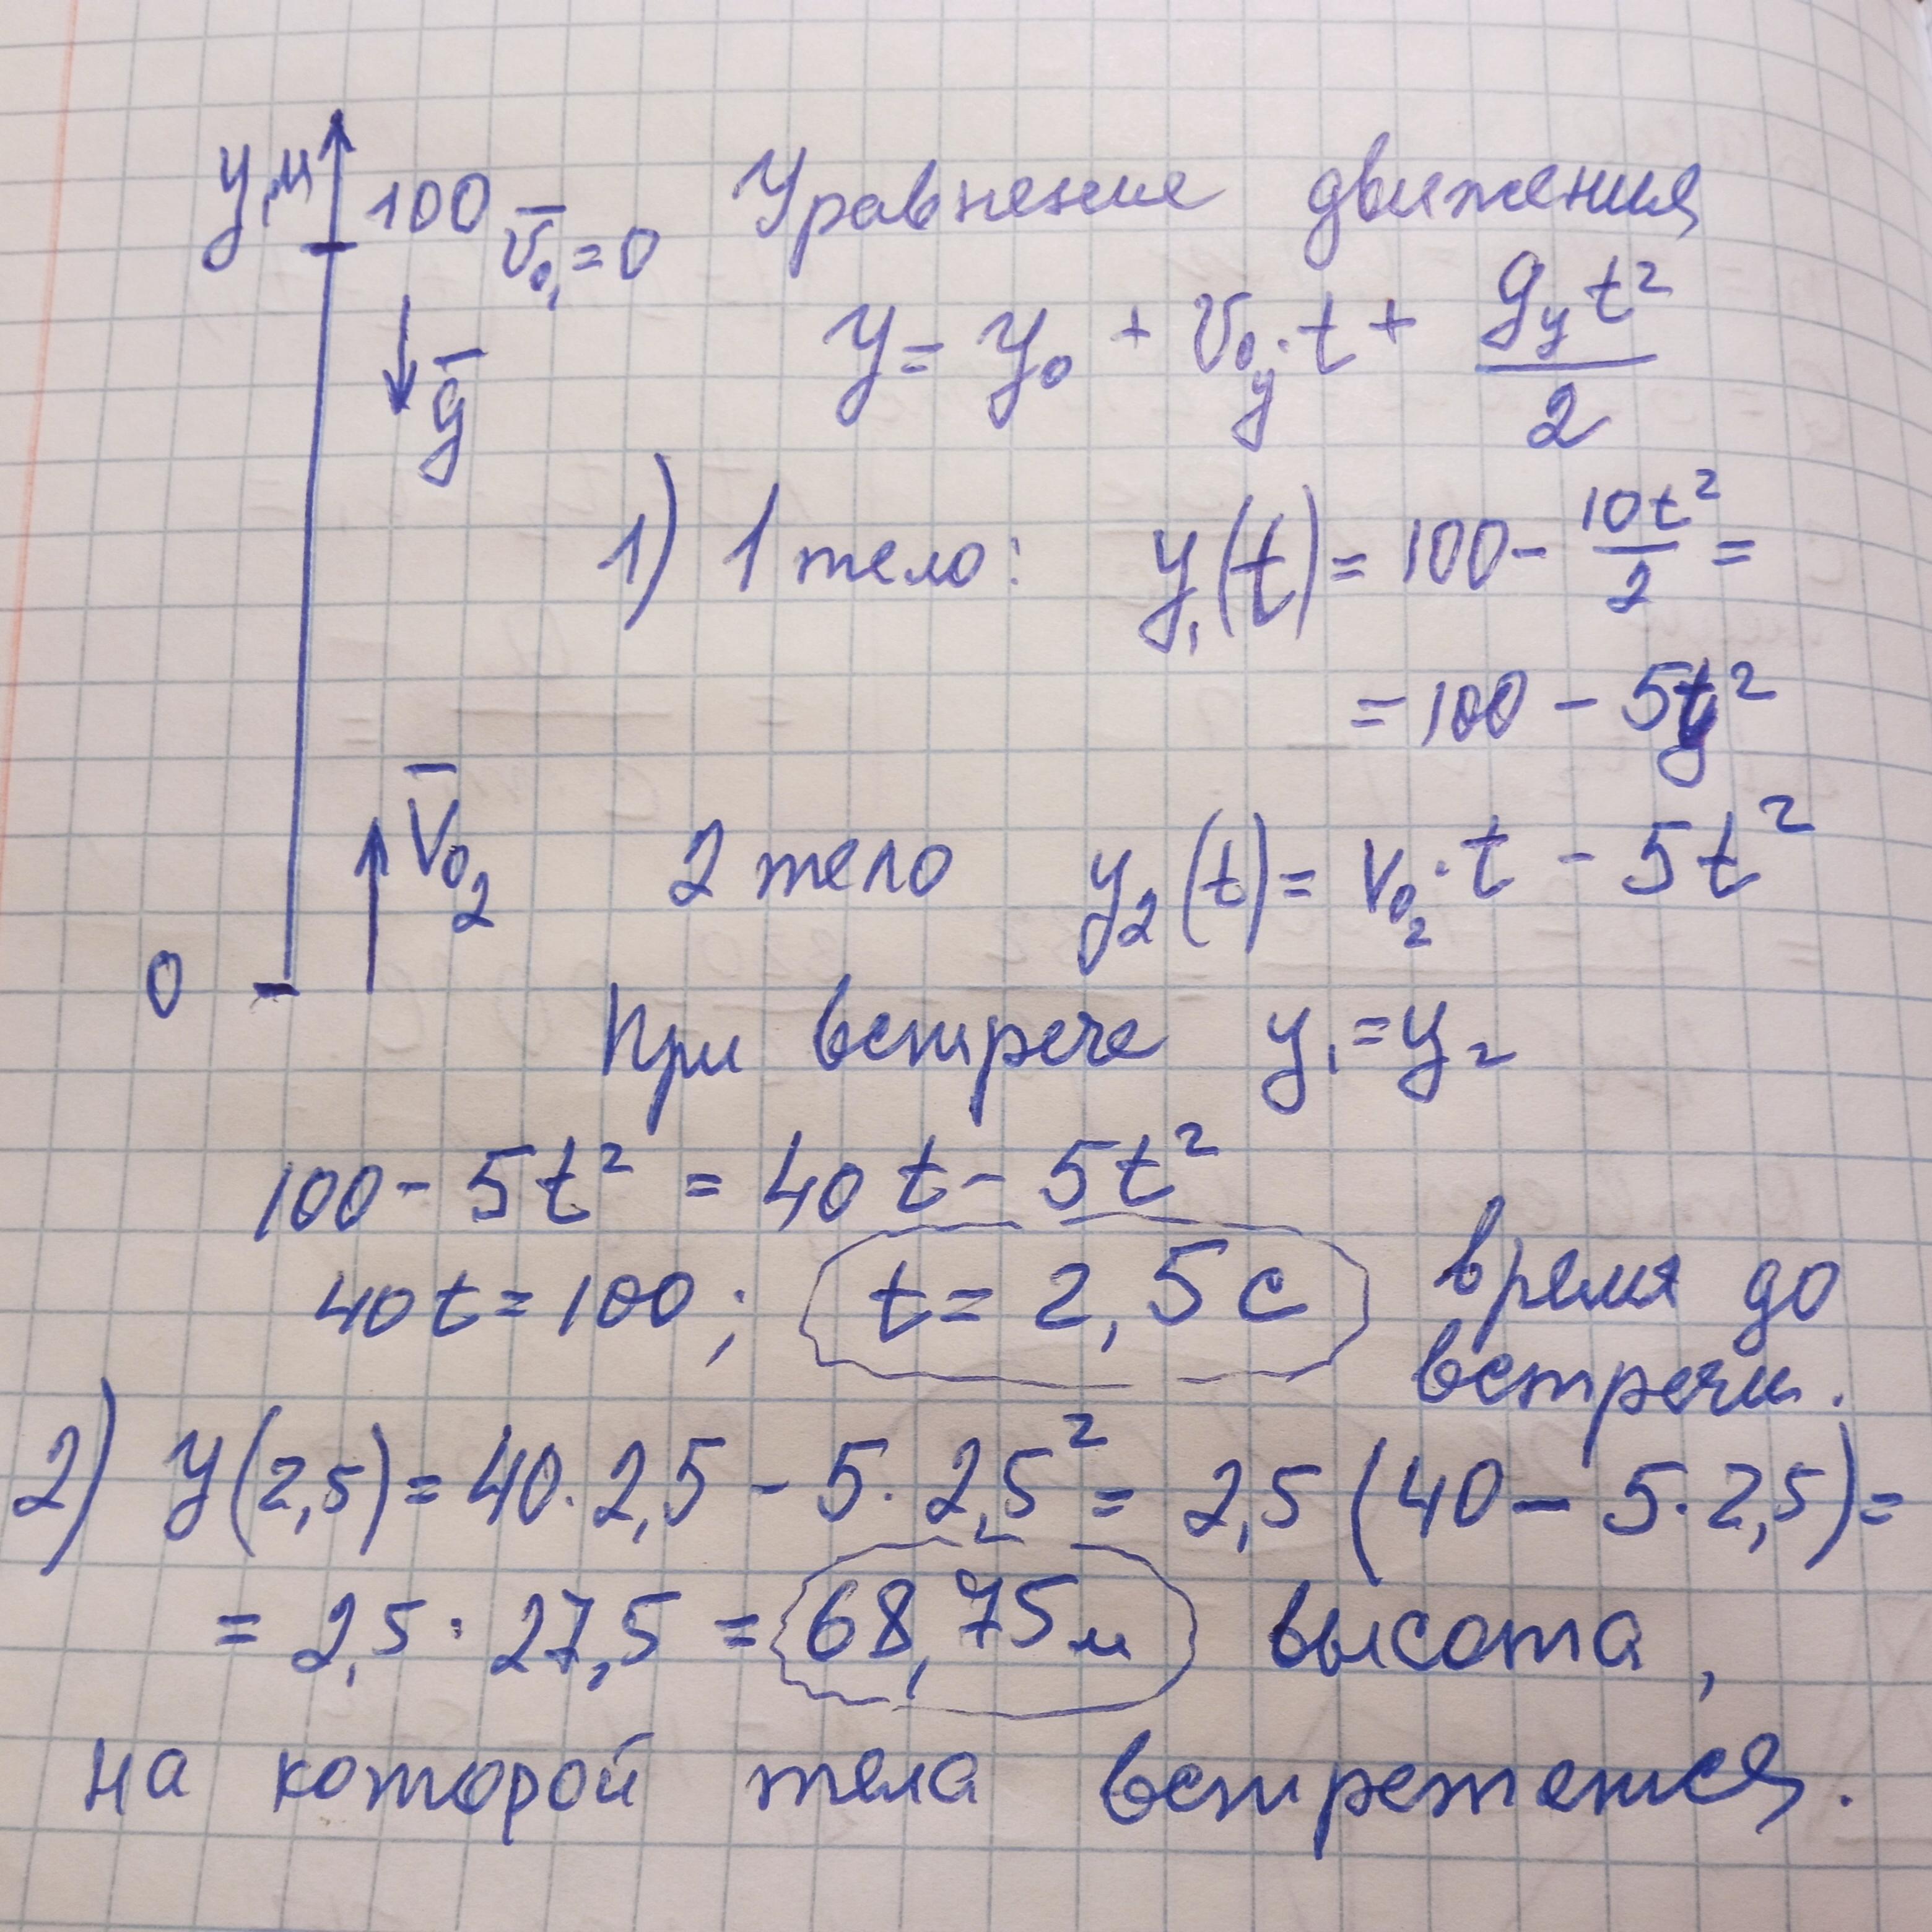 y,м
100
v̅₀₁=0
Уравнение движения
g̅
y = y₀ + v₀y·t + gyt²/2
1) 1 тело: y₁(t) = 100 - 10t²/2 =
= 100 - 5t²
v̅₀₂
2 тело y₂(t) = v₀₂·t - 5t²
0
При встрече y₁=y₂
100 - 5t² = 40t - 5t²
40t = 100; t = 2,5с время до
встречи.
2) y(2,5) = 40·2,5 - 5·2,5² = 2,5(40 - 5·2,5) =
= 2,5·27,5 = 68,75м высота,
на которой тела встретятся.